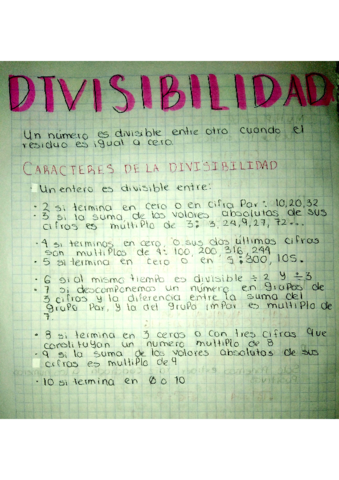 DIVISIBILIDAD
Un número es divisible entre otro cuando el
residuo es igual a cero
CARACTERES DE LA DIVISIBILIDAD
Un entero es divisible entre:
· 2 si termina en cero o en cifra Par: 10,20,32
· 3 si la suma de los valores absolutos de sus
cifras es multiplo de 3: 3, 24,9,27, 72...
· 4 si terminas en cero, o sus dos últimas cifras
son multiplos de 4: 100, 200, 316, 244
· 5 si termina en cero o en 5:300, 105.
· 6 si al mismo tiempo es divisible ÷ 2 y ÷ 3
· 7 si descomponemos un número en grupos de
3 cifras y la diferencia entre la suma del
grupo Par, y la del grupo impar es multiplo de
7.
· 8 si termina en 3 ceros o con tres cifras que
constituyan un numero multiplo de 8
· 9 si la suma de los valores absolutos de sus
cifras es multiplo de 9
· 10 si termina en 0 o 10